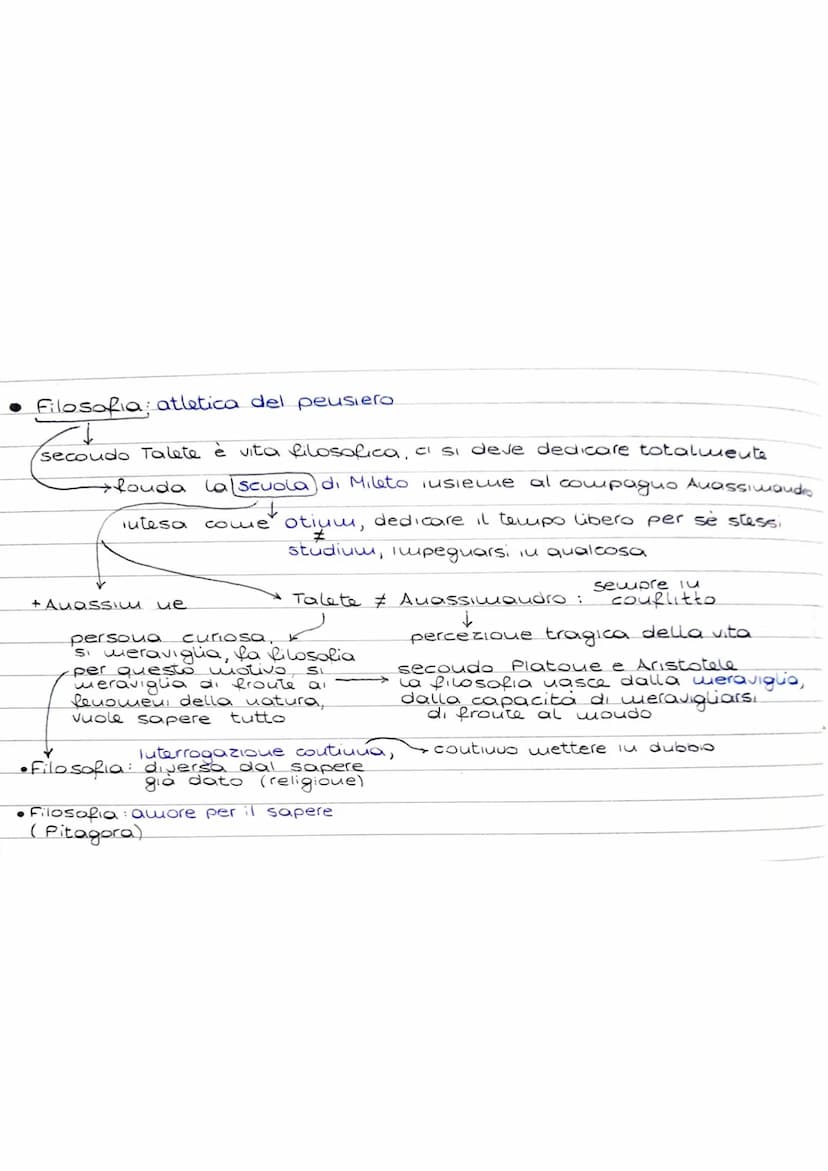 • Filosofia: atletica del pensiero
secondo Talete è vita filosofica, ci si deve dedicare totalmente
fonda la scuola di Mileto insieme al compagno Anassimandro
intesa come otium, dedicare il tempo libero per sè stessi
≠
studium, impegnarsi in qualcosa
+ Anassim ne
Talete ≠ Anassimandro: sempre in
conflitto
persona curiosa,
si meraviglia, fa filosofia
per questo motivo, si
meraviglia di fronte ai
fenomeni della natura,
vuole sapere tutto
percezione tragica della vita
secondo Platone e Aristotele
la filosofia nasce dalla meraviglia,
dalla capacità di meravigliarsi
di fronte al mondo
• Filosofia: interrogazione continua,
diversa dal sapere
già dato (religione)
continuo mettere in dubbio
• Filosofia: amore per il sapere
(Pitagora)